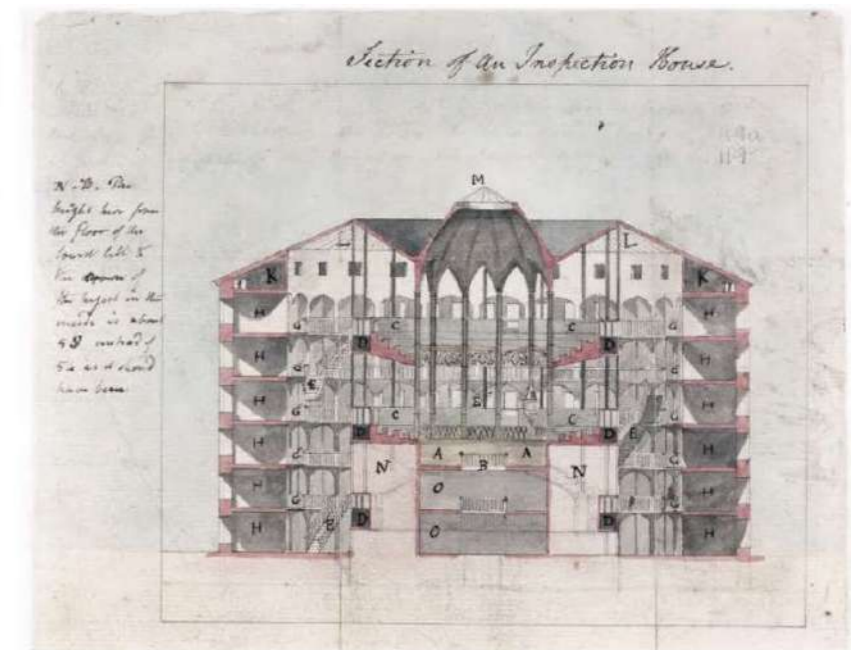 Section of an Inspection House.
N.B. The
height here from
the floor of the
lowest Cell to
the of
the highest in the
inside is about
instead of
as it should
have been
M
L L
K K
H G C C G H
H D D H
G G
H E E H
G C C G
H D D E H
A A
N B N
G G
H O H
G
H E D O D H